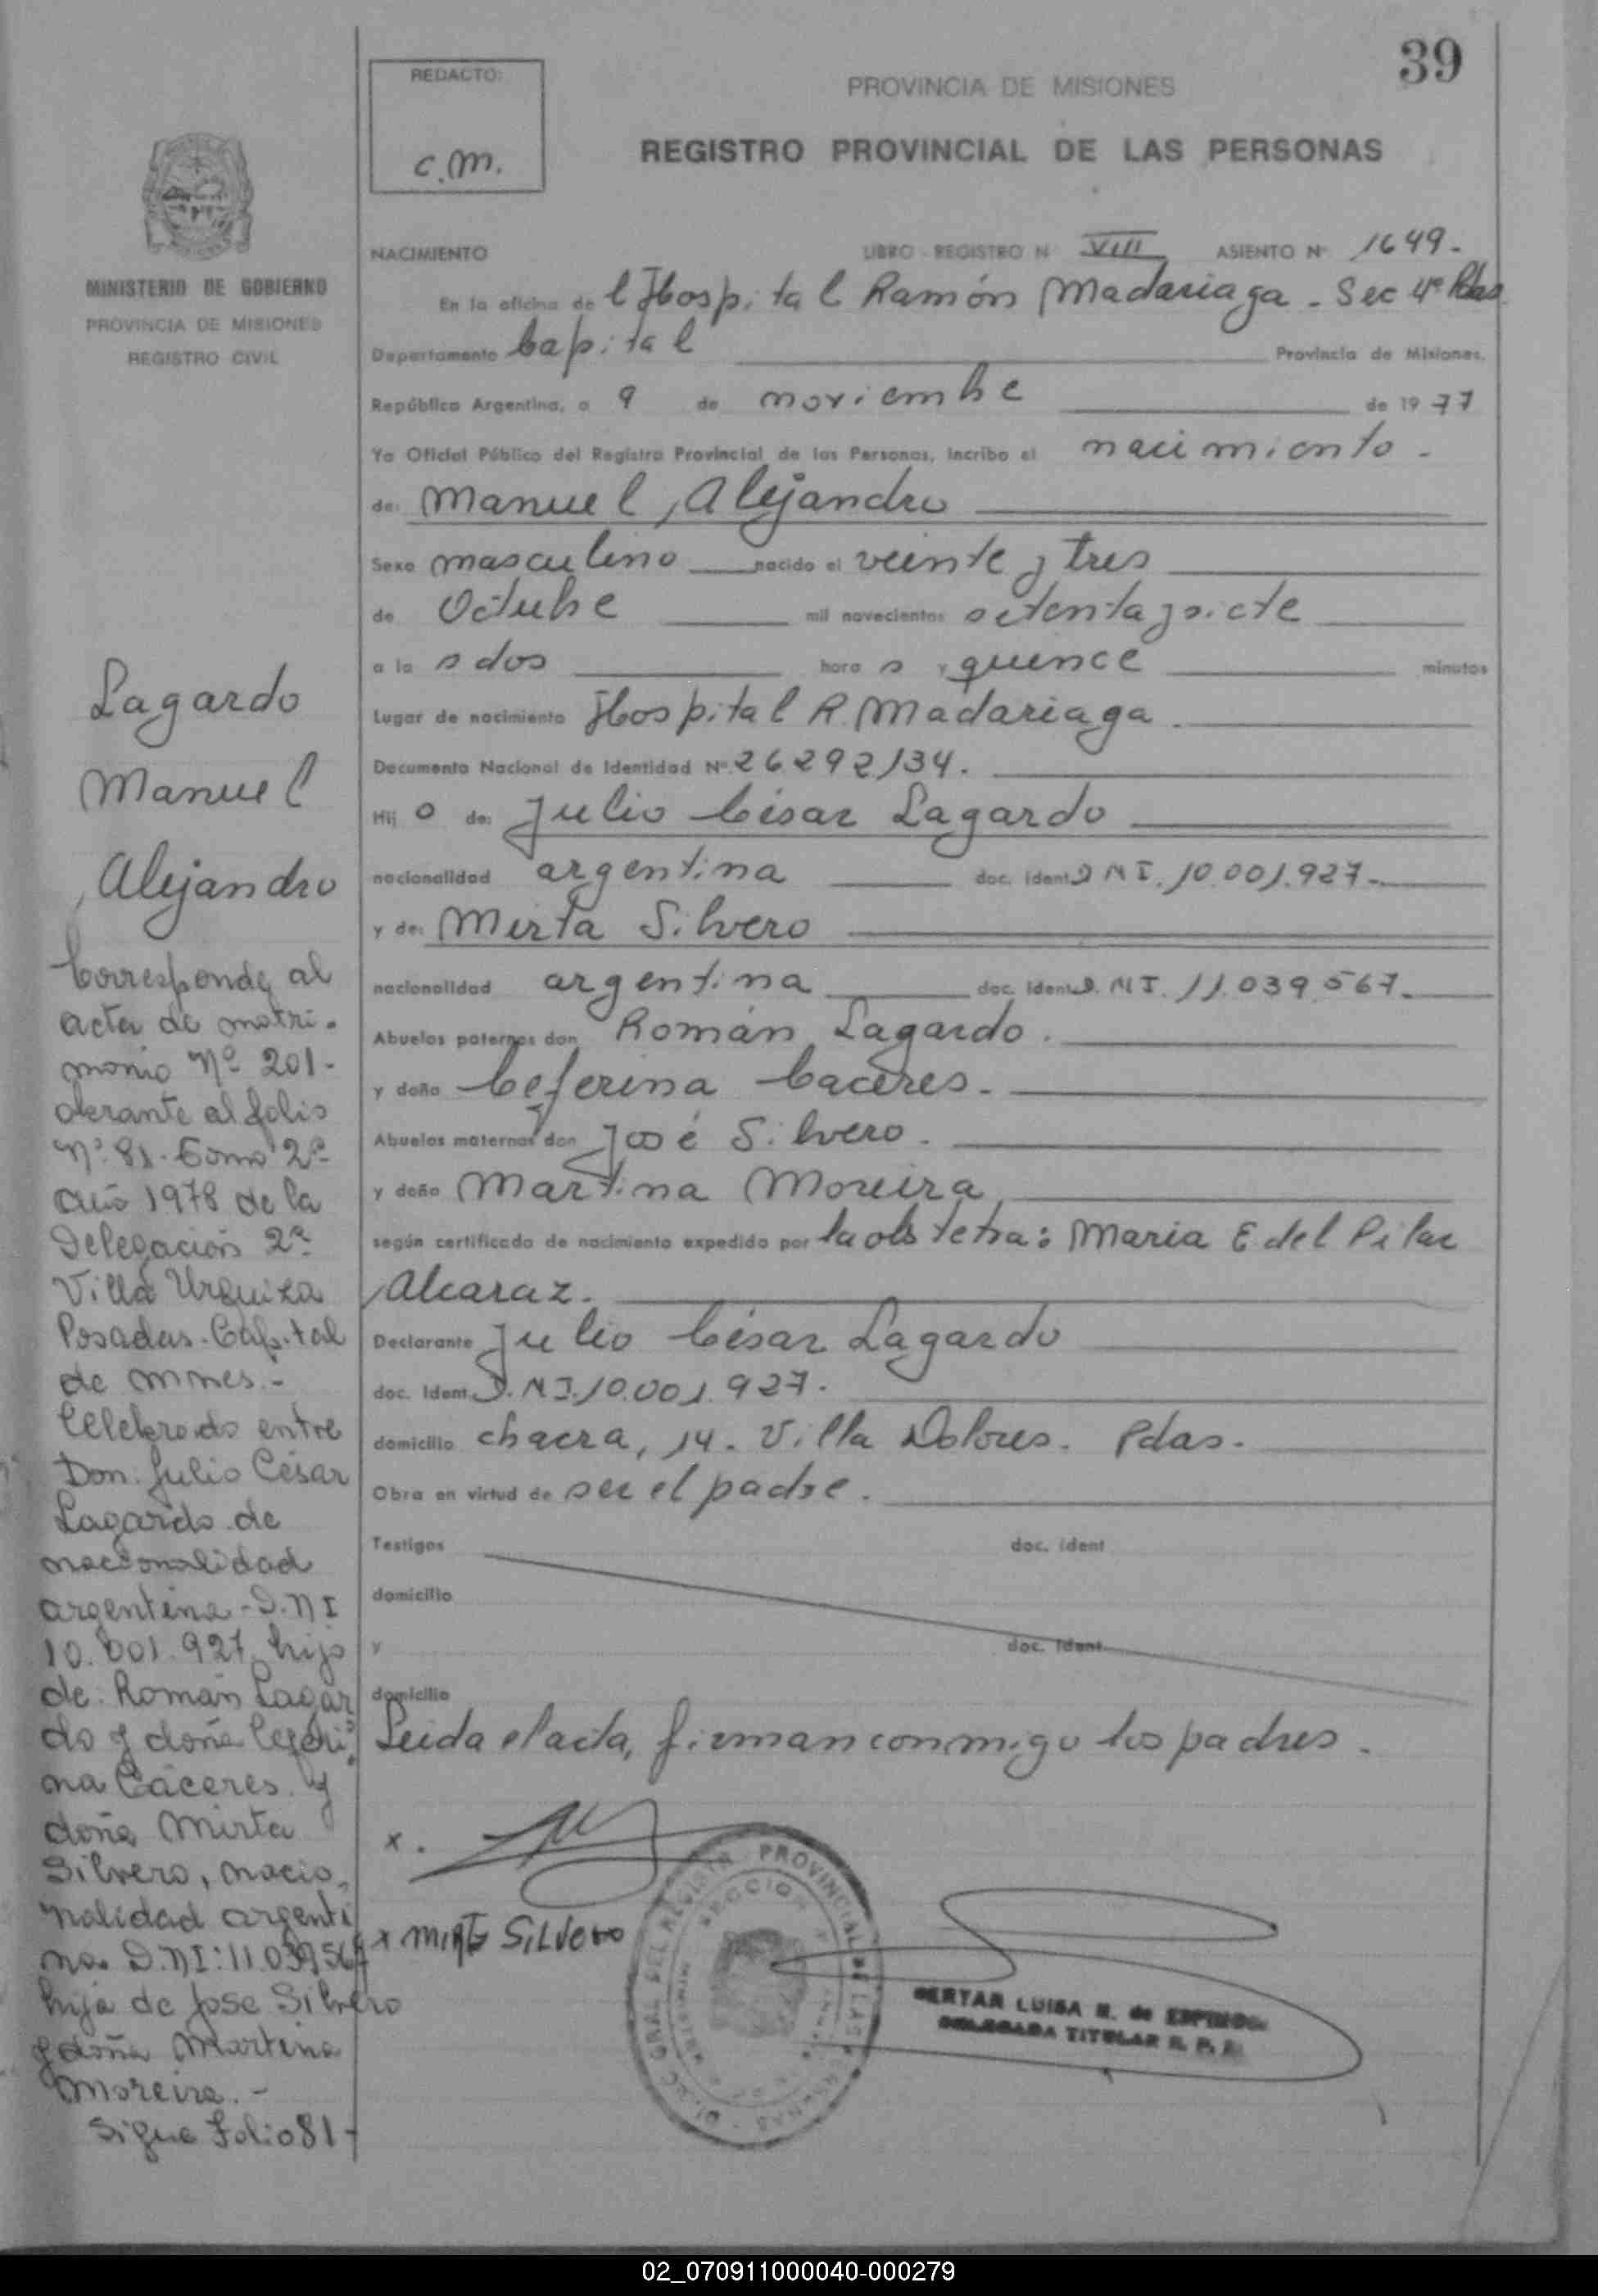 39
REDACTO:
C.M.
PROVINCIA DE MISIONES
REGISTRO PROVINCIAL DE LAS PERSONAS
MINISTERIO DE GOBIERNO
PROVINCIA DE MISIONES
REGISTRO CIVIL
NACIMIENTO LIBRO - REGISTRO N VIII ASIENTO Nº 1649.-
En la oficina de l Hospital Ramón Madariaga - Sec 4ª Pdas
Departamento Capital Provincia de Misiones,
República Argentina, a 9 de noviembre de 1977
Yo Oficial Público del Registro Provincial de las Personas, inscribo el nacimiento -
de: Manuel Alejandro
Sexo masculino nacido el veinte y tres
de Octubre mil novecientos setenta y siete
a la s dos hora s y quince minutos
Lugar de nacimiento Hospital R. Madariaga.
Documento Nacional de Identidad Nº 26.292.134.
Hij o de: Julio César Lagardo
nacionalidad argentina doc. ident. D.N.I. 10.001.927.-
y de: Mirta Silvero
nacionalidad argentina doc. ident. D.N.I. 11.039.567.
Abuelos paternos don Román Lagardo.
y doña Ceferina Caceres.-
Abuelos maternos don José Silvero.
y doña Martina Moreira
según certificado de nacimiento expedido por la obstetra: Maria E del Pilar
Alcaraz.
Declarante Julio César Lagardo
doc. ident. D.N.I. 10.001.927.
domicilio chacra, 14. Villa Dolores. Pdas.
Obra en virtud de ser el padre.
Testigos doc. ident
domicilio
y doc. ident.
domicilio
Leida el acta, firman conmigo los padres.
x.
x MIRTA SILVERO
REGISTRO PROVINCIAL DE LAS PERSONAS
BERTAR LUISA R. de ESPINOSA
DELEGADA TITULAR R. P. P.
Lagardo
Manuel
Alejandro
Corresponde al
acta de matri-
monio Nº 201-
obrante al folio
Nº 81. Tomo 2º
Año 1978 de la
Delegación 2ª
Villa Urquiza
Posadas-Capital
de mnes.-
Celebrado entre
Don: Julio César
Lagardo de
nacionalidad
argentina-D.N.I
10.001.927 hijo
de: Román Lagar
do y doña Ceferi
na Cáceres y
doña Mirta
Silvero, nacio-
nalidad argenti
na D.N.I: 11.039567
hija de Jose Silvero
y doña Martina
Moreira.-
Sigue Folio 81-
02_070911000040-000279